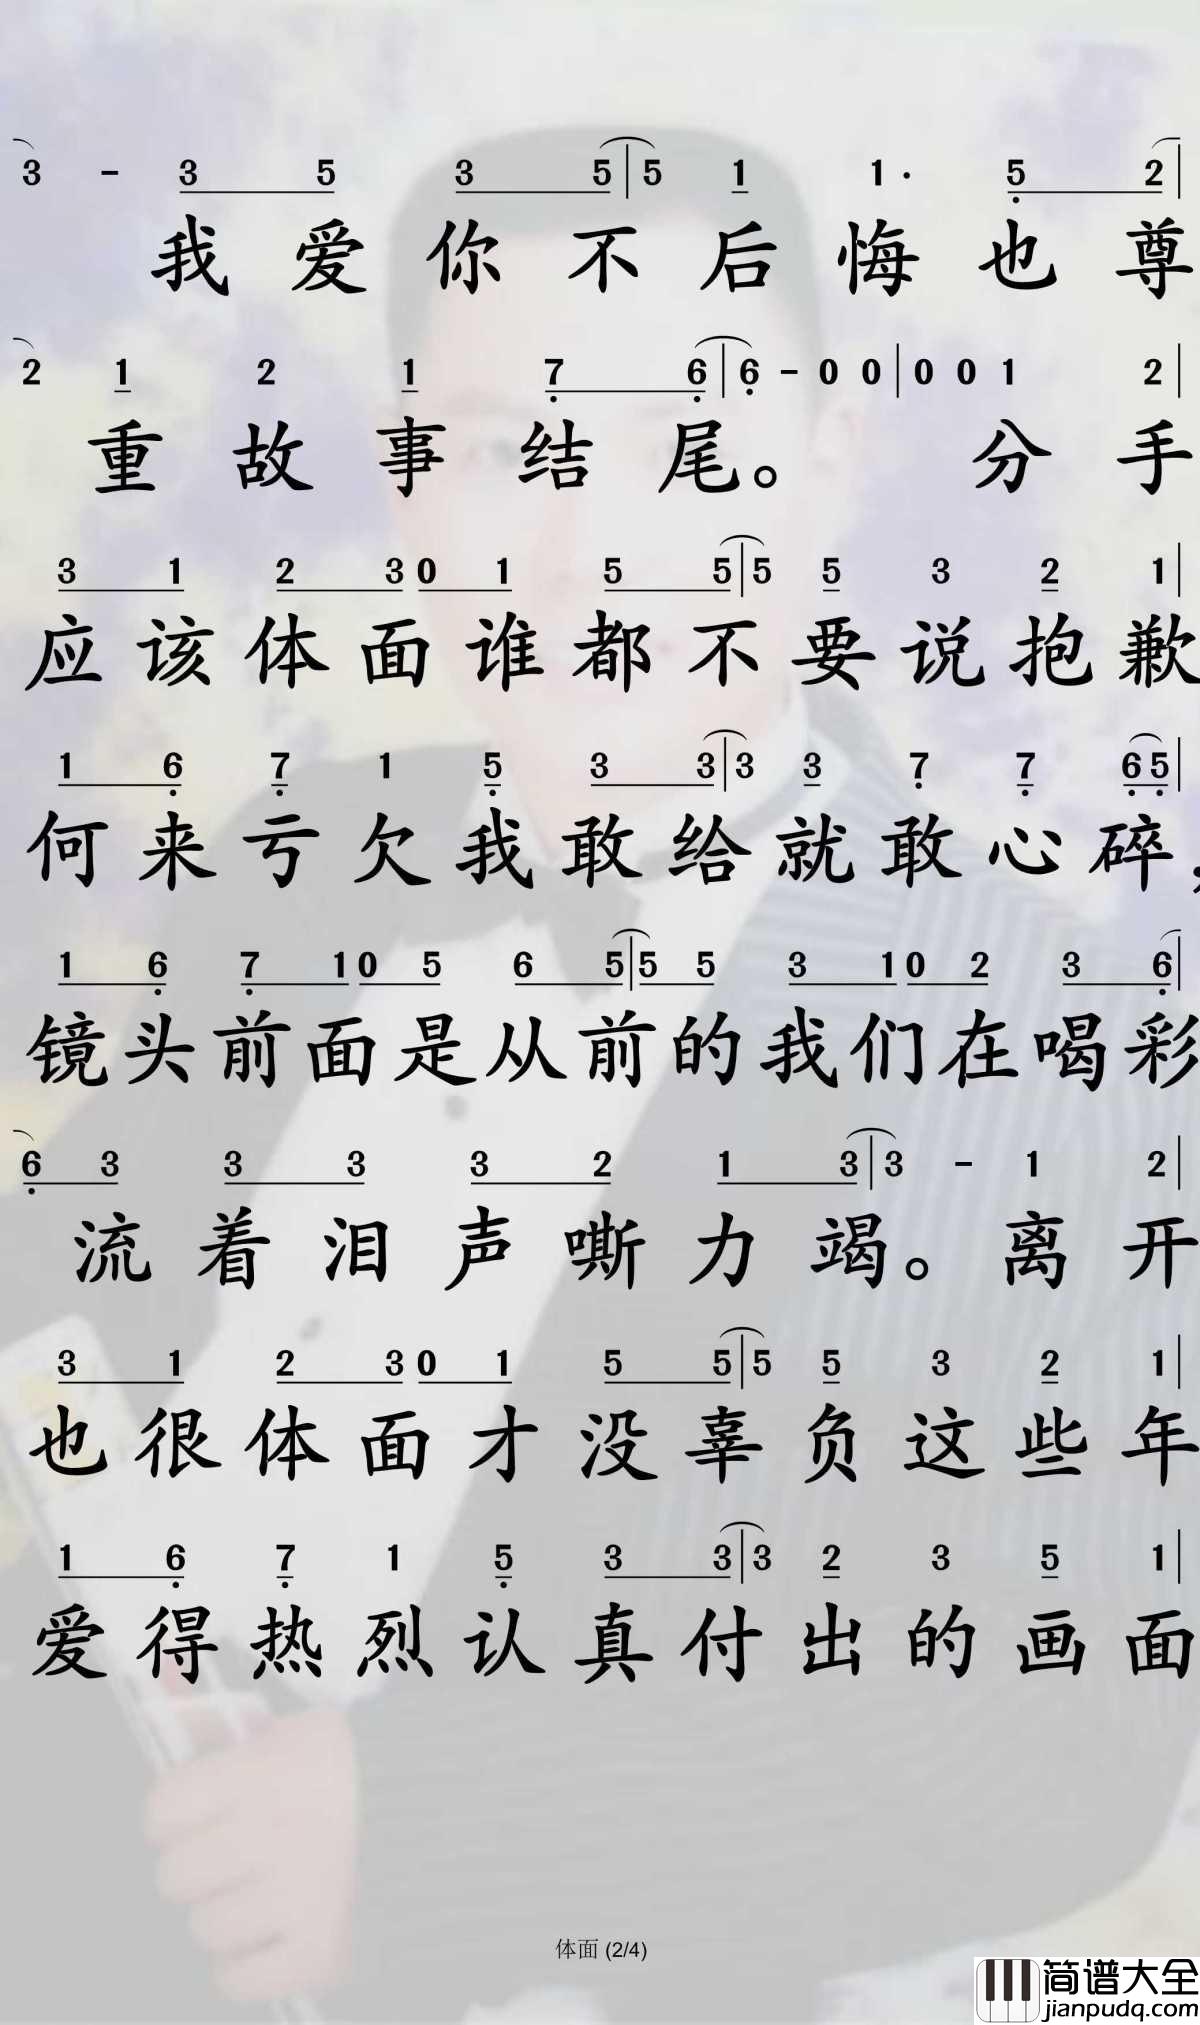 3 - 3 5 3 5 | 5 1 1 · 5 2 |
我爱你不后悔也尊
2 1 2 1 7 6 | 6 - 0 0 | 0 0 1 2 |
重故事结尾。 分手
3 1 2 3 0 1 5 5 | 5 5 3 2 1 |
应该体面谁都不要说抱歉
1 6 7 1 5 3 3 | 3 3 7 7 6 5 |
何来亏欠我敢给就敢心碎,
1 6 7 1 0 5 6 5 | 5 5 3 1 0 2 3 6 |
镜头前面是从前的我们在喝彩
6 3 3 3 3 2 1 3 | 3 - 1 2 |
流着泪声嘶力竭。离开
3 1 2 3 0 1 5 5 | 5 5 3 2 1 |
也很体面才没辜负这些年
1 6 7 1 5 3 3 | 3 2 3 5 1 |
爱得热烈认真付出的画面
体面 (2/4)
简谱大全
jianpudq.com